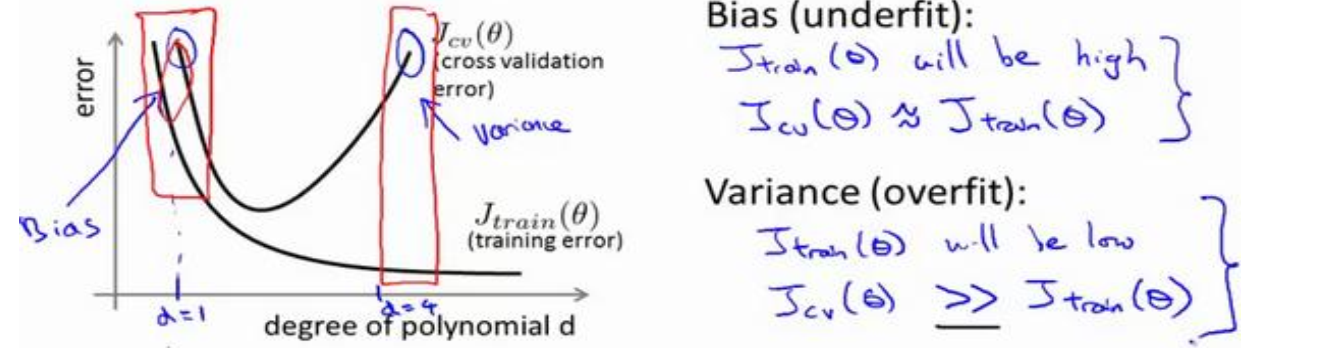 error
J_{cv}(θ)
(cross validation
error)
variance
Bias
J_{train}(θ)
(training error)
d=1
d=4
degree of polynomial d
Bias (underfit):
J_{train}(θ) will be high
J_{cv}(θ) ≈ J_{train}(θ)
Variance (overfit):
J_{train}(θ) will be low
J_{cv}(θ) >> J_{train}(θ)